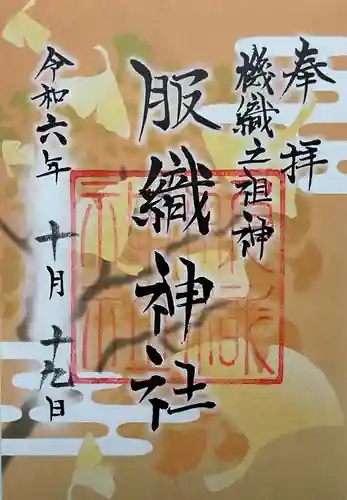 奉拝
機織之祖神
服織神社
令和六年
十月
十九日